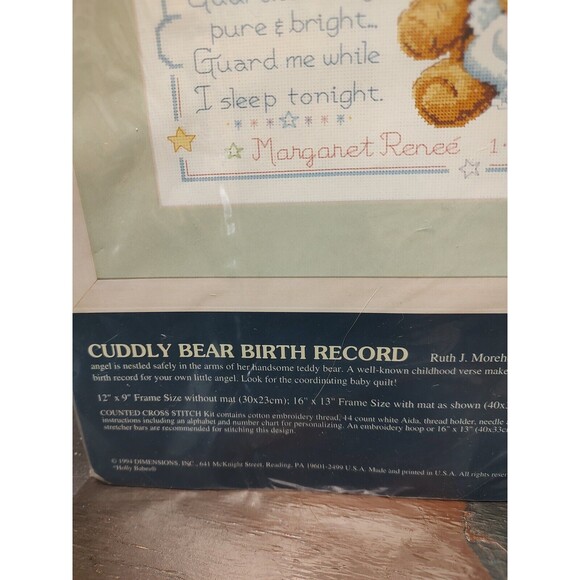 pure & bright...
Guard me while
I sleep tonight.
Margaret Reneé 1.
CUDDLY BEAR BIRTH RECORD Ruth J. Moreh
angel is nestled safely in the arms of her handsome teddy bear. A well-known childhood verse make
birth record for your own little angel. Look for the coordinating baby quilt!
12" x 9" Frame Size without mat (30x23cm); 16" x 13" Frame Size with mat as shown (40x
COUNTED CROSS STITCH Kit contains cotton embroidery thread, 14 count white Aida, thread holder, needle
instructions including an alphabet and number chart for personalizing. An embroidery hoop or 16" x 13" (40x33c
stretcher bars are recommended for stitching this design.
© 1994 DIMENSIONS, INC., 641 McKnight Street, Reading, PA 19601-2499 U.S.A. Made and printed in U.S.A. All rights reser